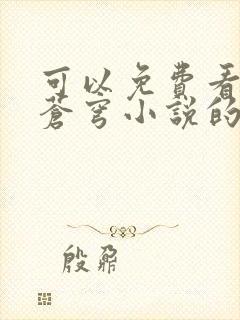 可以免費看
蒼穹小說的
殷鼐